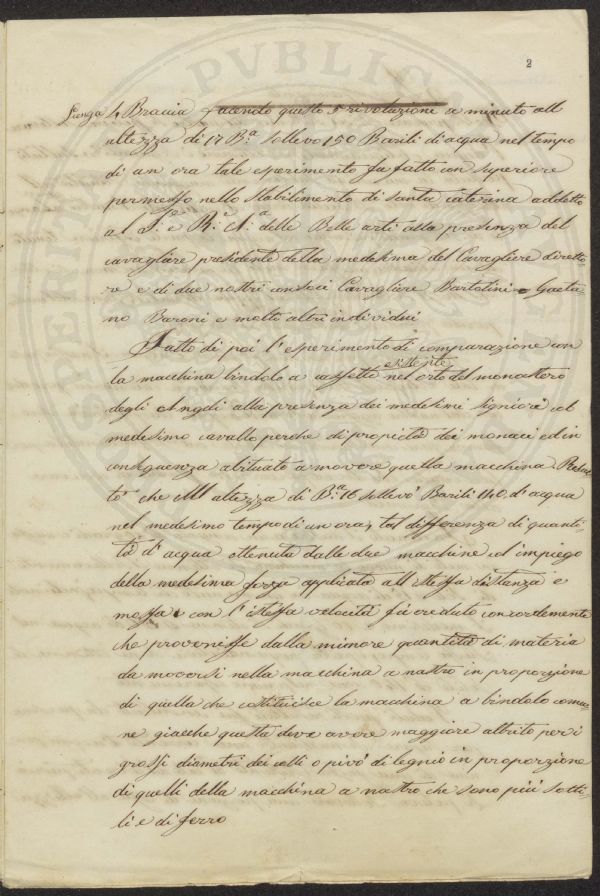 2
lunga 4 Braccia facendo questo 5 rivoluzione a minuto all
altezza di 17 B.a sollevo 150 Barili di acqua nel tempo
di un ora tale esperimento fu fatto con superiore
permesso nello Stabilimento di Santa Caterina addetto
a I.e R.e A.a delle Belle arti alla presenza del
cavagliere presidente della medesima del Cavagliere diretto
re e di due nostri consoci Cavagliere Bartolini e Gaeta
no Baroni e molti altri individui
Fatto di poi l'esperimento di comparazione con
la macchina bindolo a cassette esistente nel orto del monastero
degli Angeli alla presenza dei medesimi Signiori col
medesimo cavallo perche di propietà dei monaci ed in
conseguenza abituato a movere quella macchina Risul
tò che all altezza di B.a 16 sollevò Barili 140 d'acqua
nel medesimo tempo di un ora, tal differenza di quanti
tà d'acqua ottenuta dalle due macchine col impiego
della medesima forza applicata all istessa distanza e
mossa con l'istessa velocità fù creduto concordemente
che provenisse dalla minore quantità di materia
da moversi nella macchina a nastro in proporzione
di quella che costituisce la macchina a bindolo comu
ne giacche questa deve avere maggiore attrito per i
grossi diametri dei colli o pivò di legnio in proporzione
di quelli della macchina a nastro che sono più sotti
li e di ferro